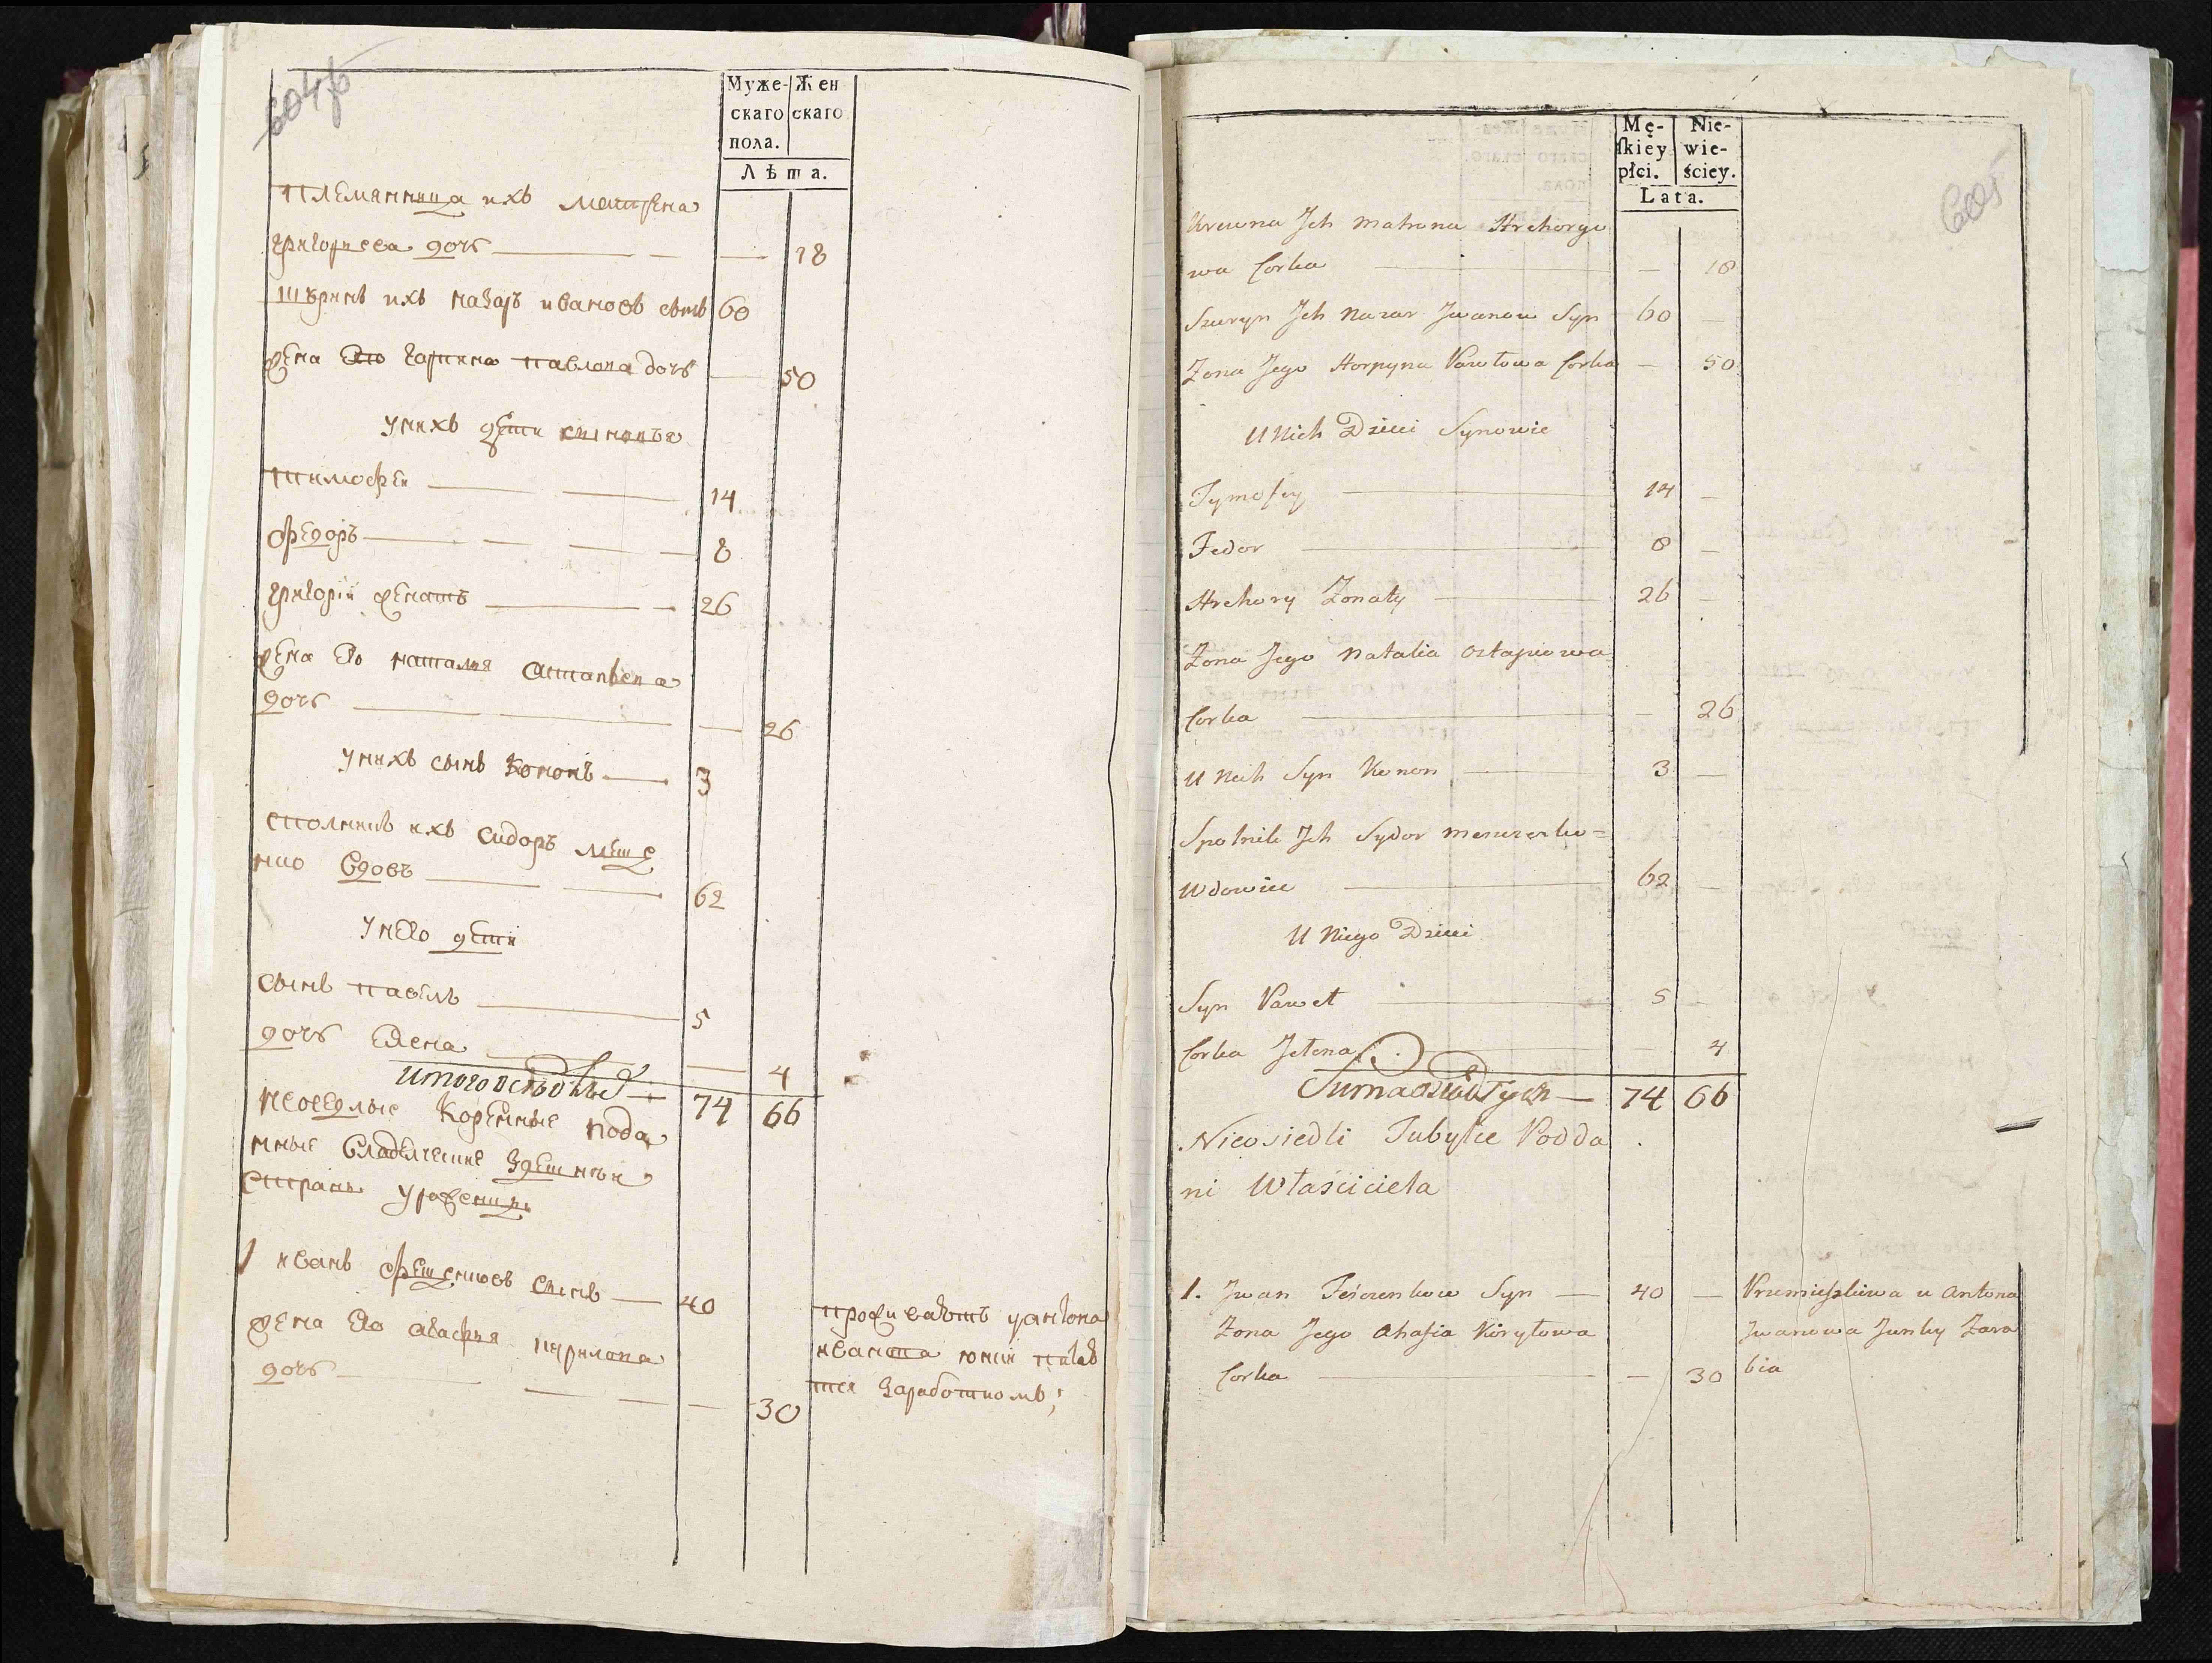 604б
Муже- Жен
скаго скаго
пола.
Лѣта.
племянница ихъ матрена
григорева дочь — 18
шѣринъ ихъ назаръ ивановъ сынъ 60
жена его гарпина павлова дочь — 50
у нихъ дети сыновья
тимофеи — 14
федоръ — 8
григории женатъ — 26
жена его наталия
дочь — 26
у нихъ сынъ кононъ — 3
сполникъ ихъ сидоръ меще
нко вдовъ — 62
у него дети
сынъ павелъ — 5
дочь елена — 4
74 66
неоседлые коренные пода
нные владелческие здешнеи
страны уроженцы
1 иванъ фещенковъ сынъ — 40
жена его агафия кирилова
дочь — 30
проживаетъ у антона
иванова юнки питае
тся заработкомъ;
605
Mę- Nie-
ſkiey wie-
płci. ściey.
Lata.
Krewna Jch Matrona Hrehorye
wa Corka — 18
Szuryn Jch Nazar Jwanow Syn 60 —
Zona Jego Horpyna Pawłowa Corka — 50
U Nich Dzieci Synowie
Tymofey — 14 —
Fedor — 8 —
Hrehory Zonaty — 26 —
Zona Jego Natalia Ostapiowa
Corka — — 26
U Nich Syn Konon — 3 —
Spolnik Jch Sydor Meszczenko=
Wdowiec — 62 —
U Niego Dzieci
Syn Paweł — 5 —
Corka Jelena — 4
Suma osiadłych — 74 66
Nieosiedli Tubylce Podda
ni Właściciela
1. Jwan Feszczenkow Syn — 40 —
Zona Jego Ahafia Kiryłowa
Corka — — 30
Przemieszkiwa u Antona
Jwanowa Junky Zara
bia